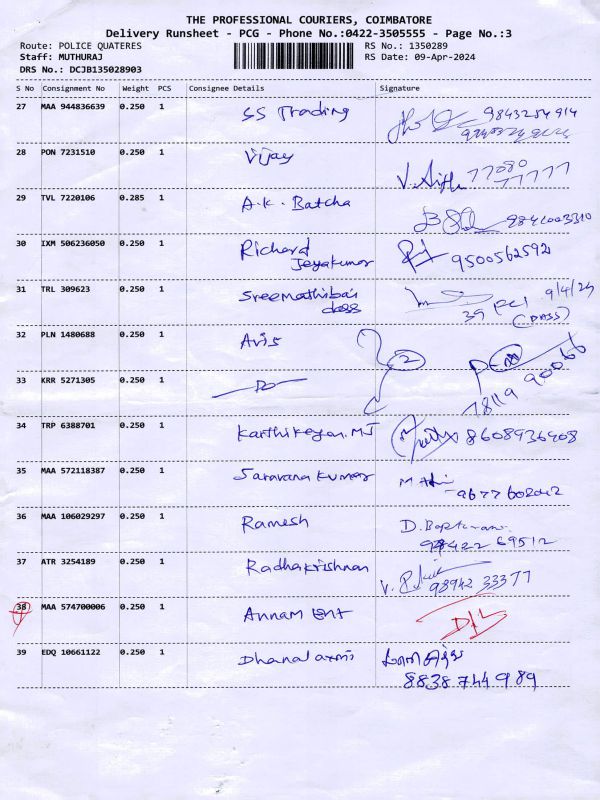 THE PROFESSIONAL COURIERS, COIMBATORE
Delivery Runsheet - PCG - Phone No.:0422-3505555 - Page No.:3
Route: POLICE QUATERES RS No.: 1350289
Staff: MUTHURAJ RS Date: 09-Apr-2024
DRS No.: DCJB135028903
S No Consignment No Weight PCS Consignee Details Signature
27 MAA 944836639 0.250 1 SS Trading
28 PON 7231510 0.250 1 Vijay 77080
77777
29 TVL 7220106 0.285 1 A.K. Batcha
30 IXM 506236050 0.250 1 Richard
Jeyakumar 9500562592
31 TRL 309623 0.250 1 Sreemathibai
dass 39 PCI 9/4/24
(DASS)
32 PLN 1480688 0.250 1 Avis 2
33 KRR 5271305 0.250 1 78119 90066
34 TRP 6388701 0.250 1 Karthikeyan.MJ 8608936408
35 MAA 572118387 0.250 1 Saravana Kumar
9677602042
36 MAA 106029297 0.250 1 Ramesh
98422 69512
37 ATR 3254189 0.250 1 Radhakrishnan
98942 33377
38 MAA 574700006 0.250 1 Annam Ent D/L
39 EDQ 10661122 0.250 1 Dhanalaxmi
8838744989